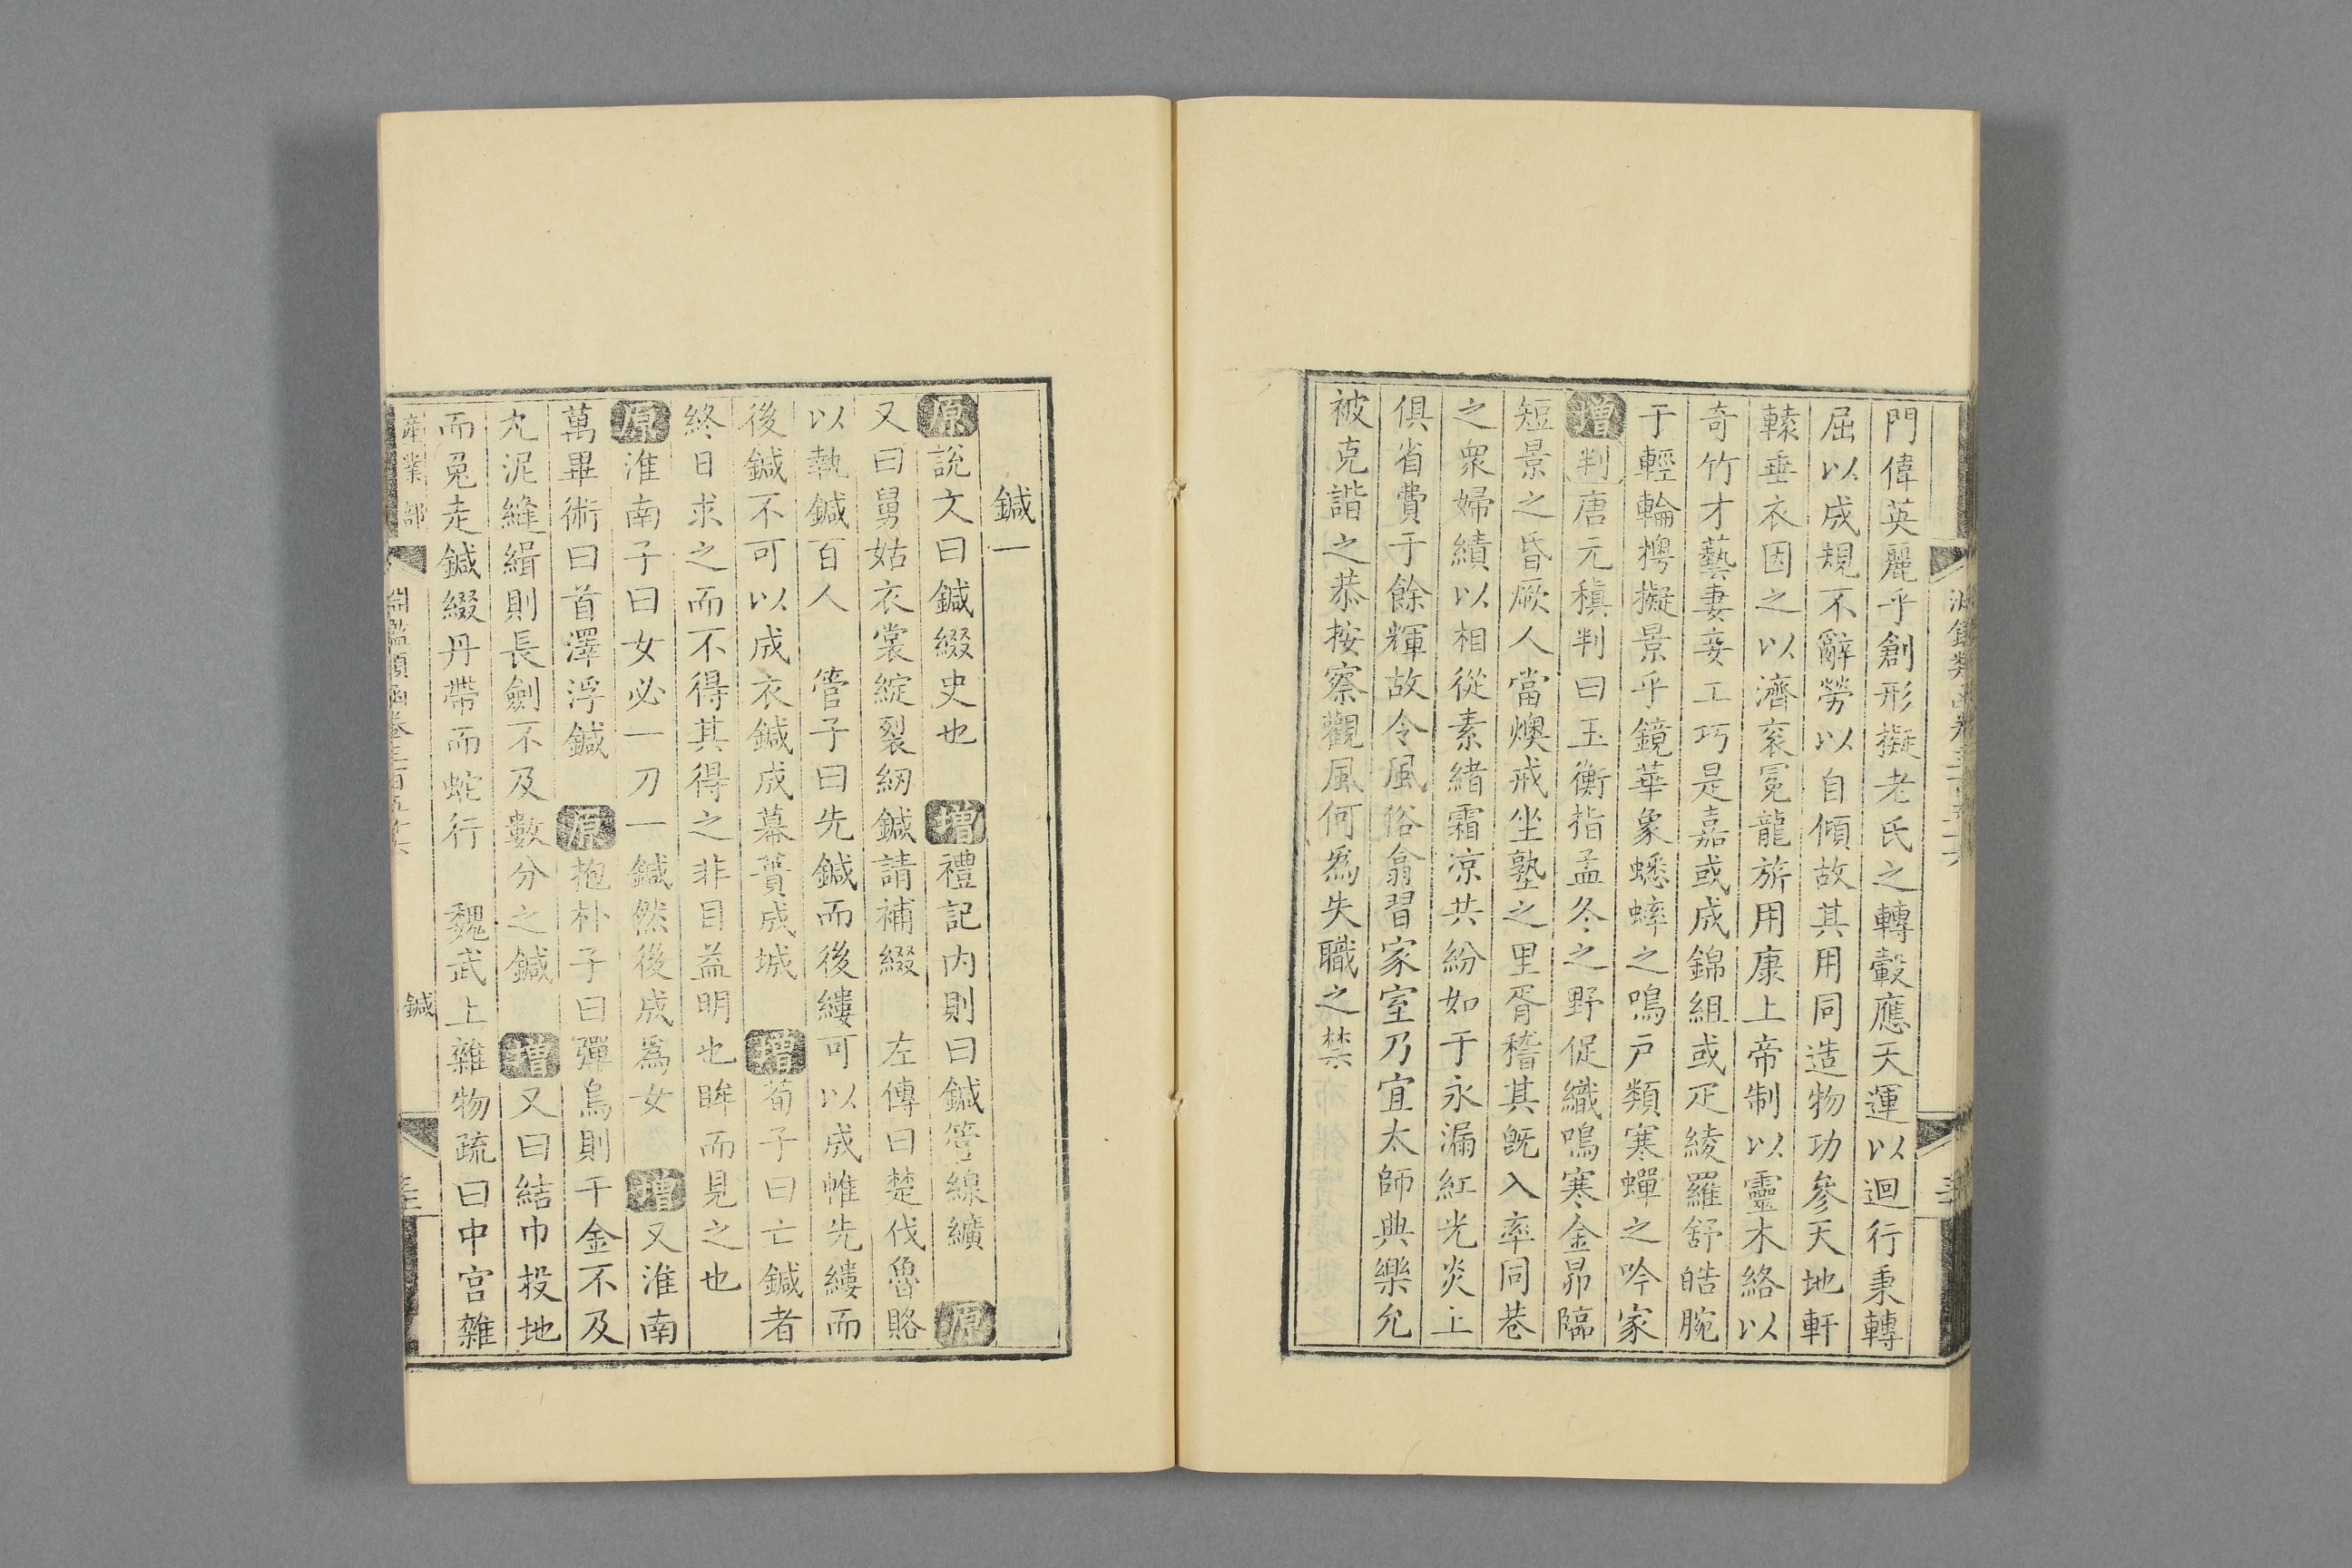 門偉英麗乎創形擬老氏之轉轂應天運以迴行秉轉
屈以成規不辭勞以自傾故其用同造物功參天地軒
轅垂衣因之以濟袞冕龍旂用康上帝制以靈木絡以
奇竹才藝妻妾工巧是嘉或成錦組或疋綾羅舒皓腕
于輕輪摴擬景乎鏡華象蟋蟀之鳴戶類寒蟬之吟家
增判唐元稹判曰玉衡指孟冬之野促織鳴寒金昴臨
短景之昏厥人當燠戒坐塾之里胥稽其旣入率同巷
之衆婦績以相從素緒霜凉共紛如于永漏紅光炎上
俱省費于餘輝故令風俗翕習家室乃宜太師典樂允
被克諧之恭按察觀風何爲失職之禁
鍼一
原說文曰鍼綴史也 增禮記内則曰鍼管線纊 原
又曰舅姑衣裳綻裂紉鍼請補綴 左傳曰楚伐魯賂
以執鍼百人 管子曰先鍼而後縷可以成帷先縷而
後鍼不可以成衣鍼成幕蕢成城 增荀子曰亡鍼者
終日求之而不得其得之非目益明也眸而見之也
原淮南子曰女必一刀一鍼然後成爲女 增又淮南
萬畢術曰首澤浮鍼 原抱朴子曰彈烏則千金不及
丸泥縫緝則長劍不及數分之鍼 增又曰結巾投地
而兎走鍼綴丹帶而蛇行 魏武上雜物疏曰中宫雜
產業部 淵鑑類函卷三百五十六 鍼